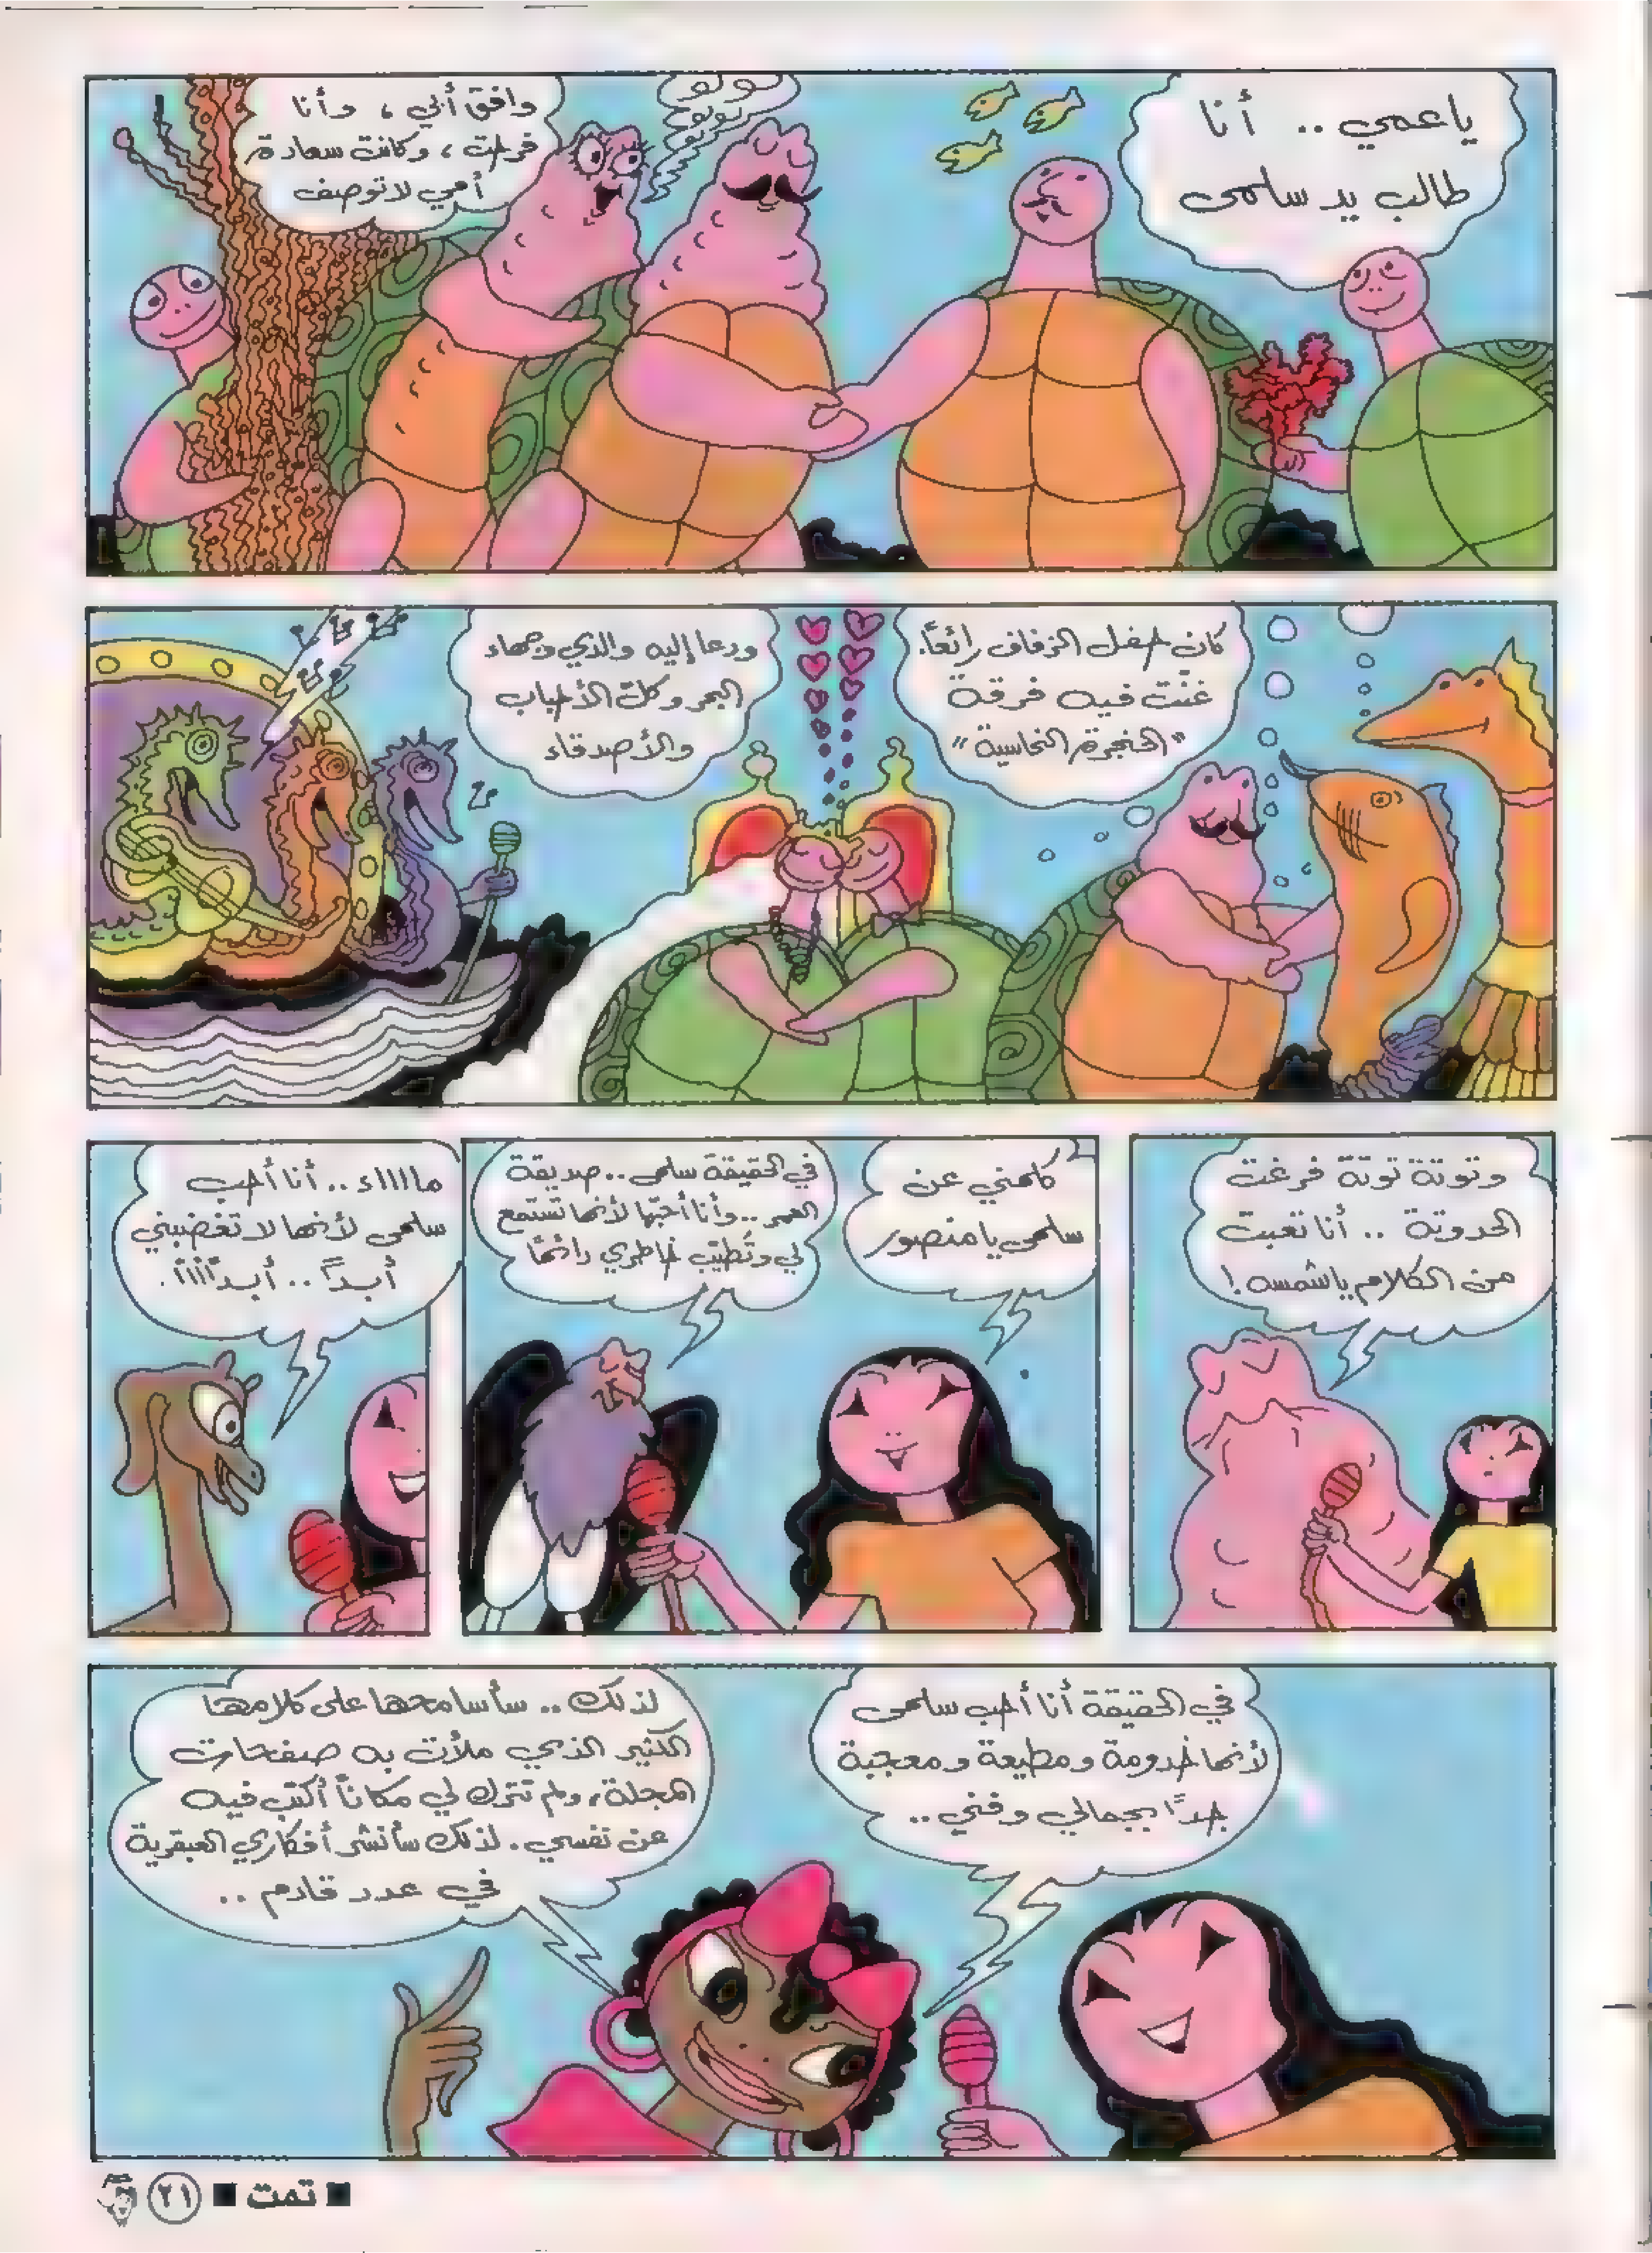 ياعمي .. أنا
طالب يد سلمى
لولو
لولو
لولو
وافق أبي ، وأنا
فرحت ، وكانت سعادة
أمي لا توصف
كان حفل الزفاف رائعاً.
غنّت فيه فرقة
"الحنجرة النحاسية"
ودعا إليه والدي وجهاء
البحر وكلّ الأحباب
والأصدقاء
وتوتة توتة فرغت
الحدوتة .. أنا تعبت
من الكلام يا شمسه !
كلمني عن
سلمى يا منصور
في الحقيقة سلمى .. صديقة
العمر .. وأنا أحبّها لأنها تستمع
لي وتُطيّب خاطري دائمًا
ماااااء .. أنا أحب
سلمى لأنها لا تغضبني
أبداً .. أبداًأأأ.
في الحقيقة أنا أحب سلمى
لأنها خدومة ومطيعة ومعجبة
جداً بجمالي وفني ..
لذلك .. سأسامحها على كلامها
الكثير الذي ملأت به صفحات
المجلة، ولم تترك لي مكاناً أكتب فيه
عن نفسي. لذلك سأنشر أفكاري العبقرية
في عدد قادم ..
■ تمت ■
٢١